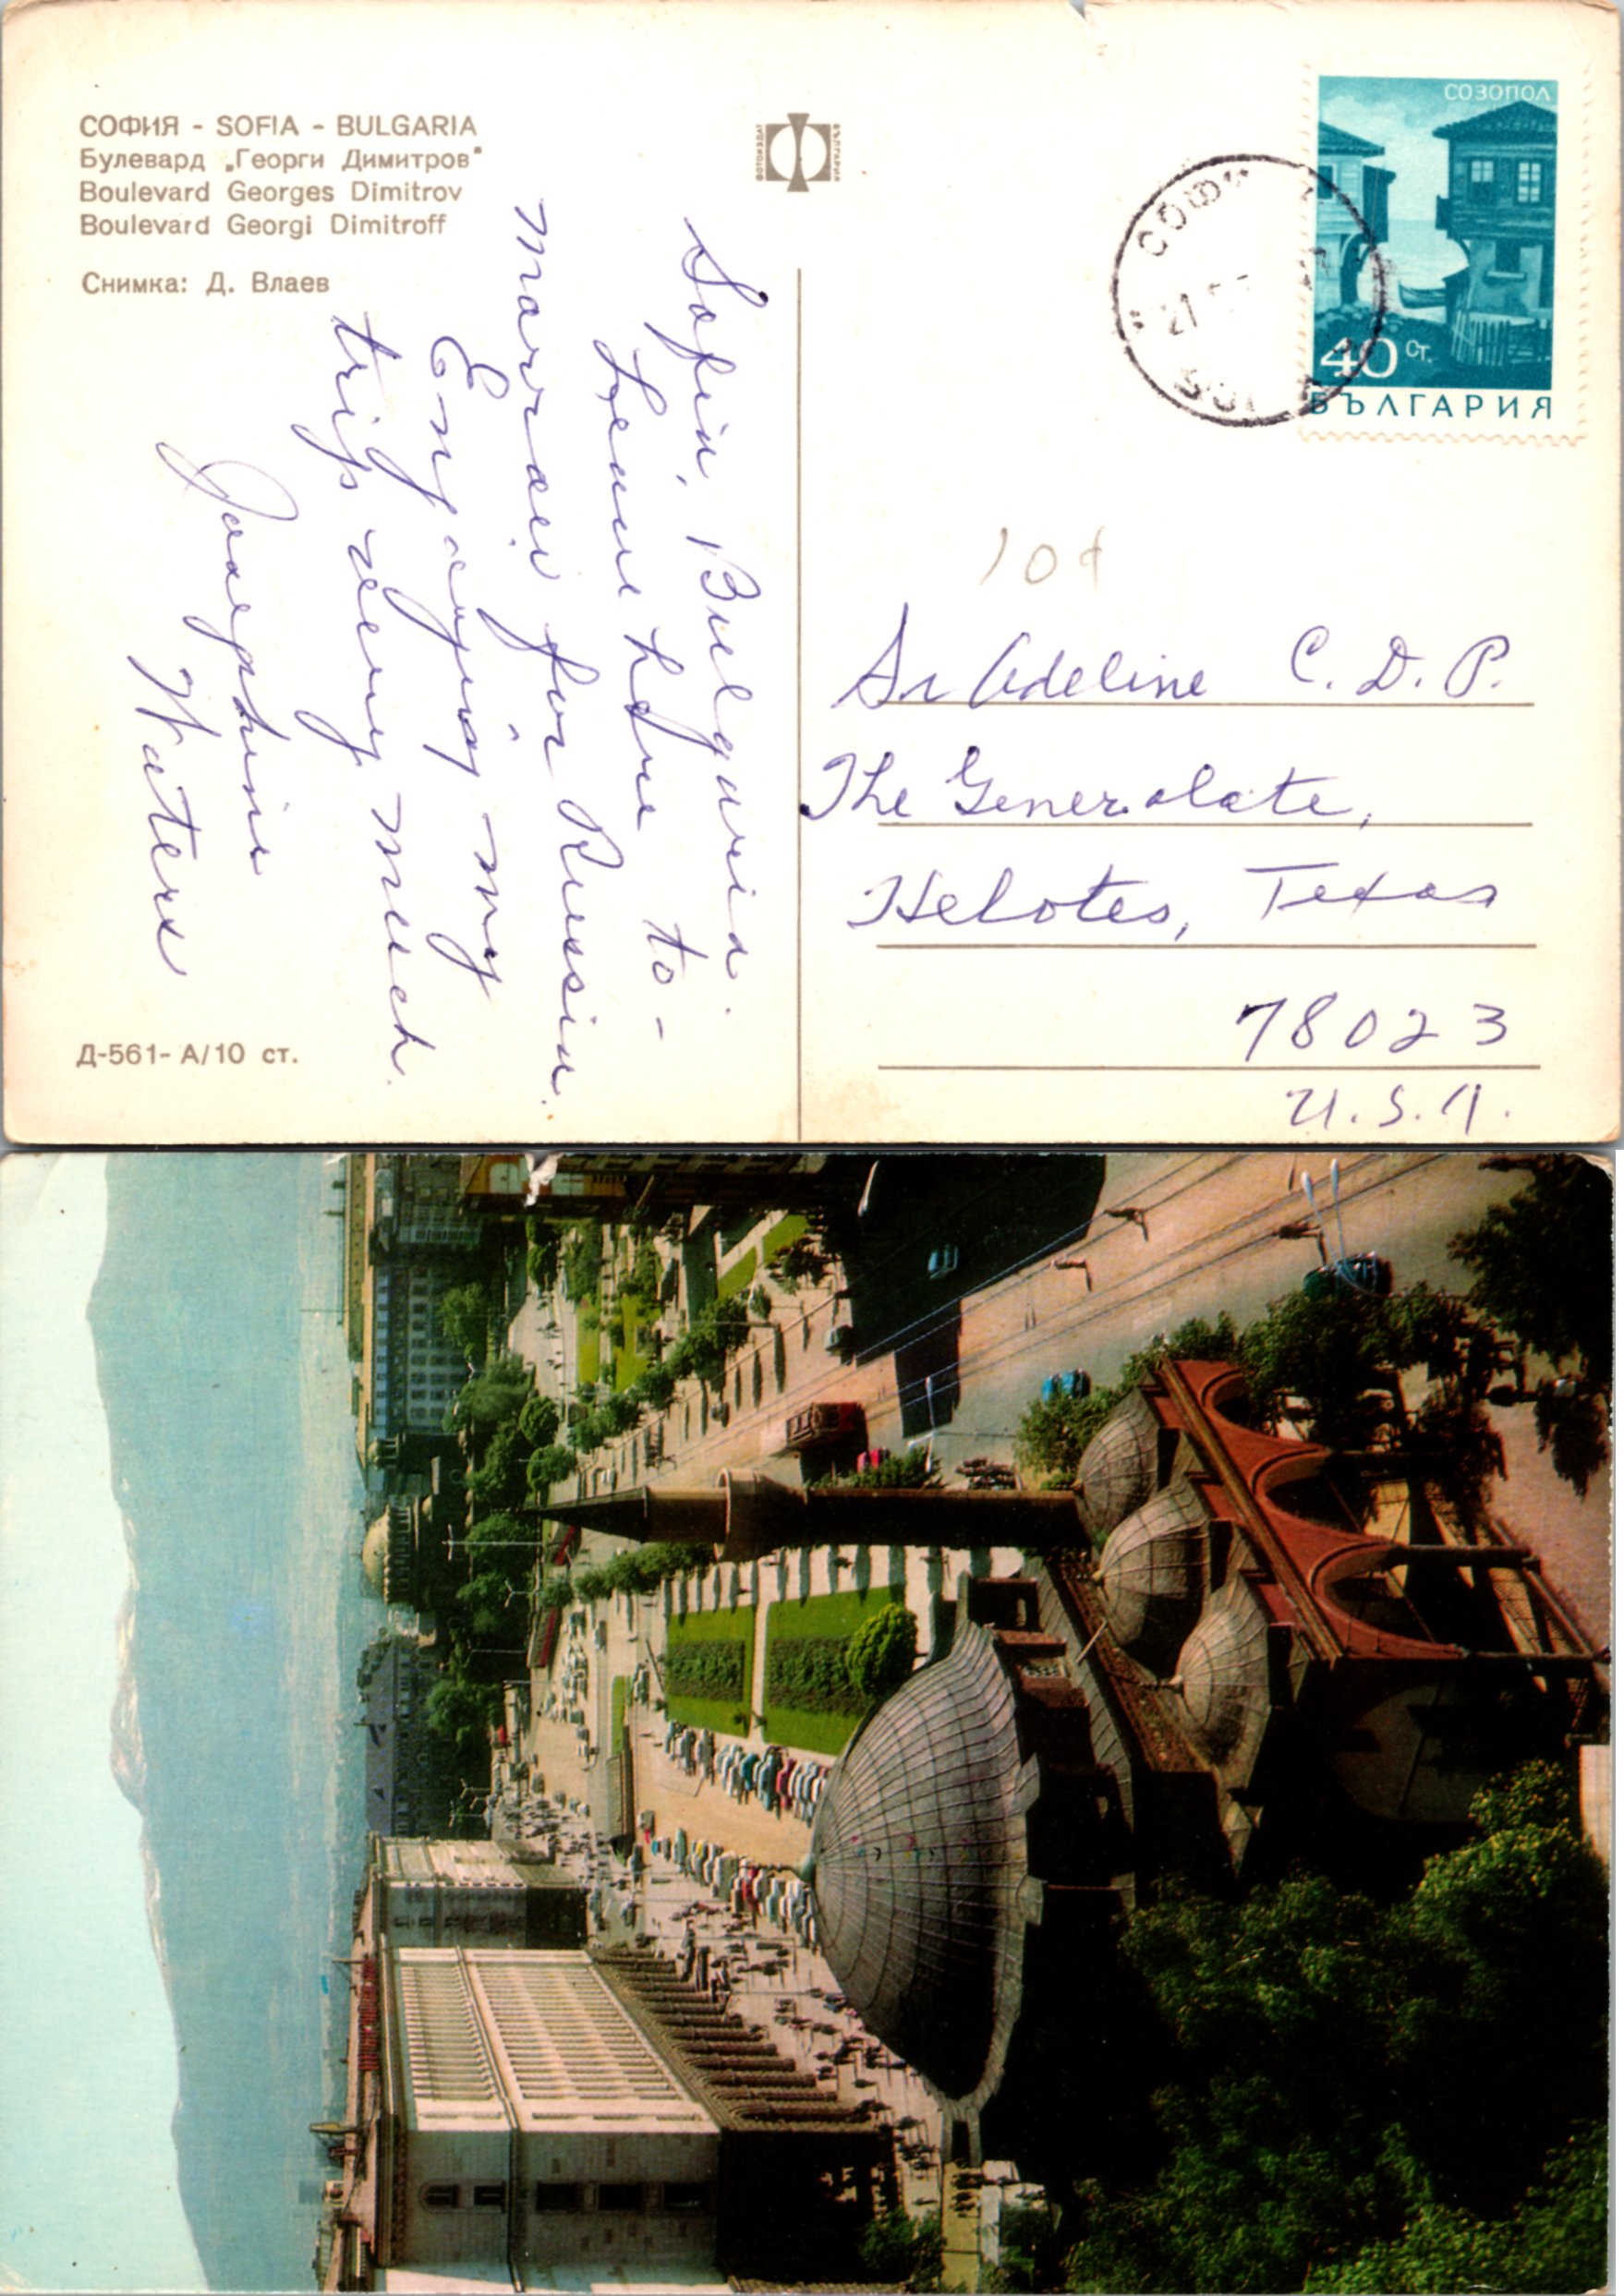 СОФИЯ - SOFIA - BULGARIA
Булевард „Георги Димитров"
Boulevard Georges Dimitrov
Boulevard Georgi Dimitroff
Снимка: Д. Влаев
Sofia, Bulgaria.
Leave here to-
morrow for Russia.
Enjoying my
trip very much.
Josephine
Waters
Д-561-А/10 ст.
ФОТОИЗДАТ
БЪЛГАРИЯ
СОЗОПОЛ
40 Ст.
БЪЛГАРИЯ
СОФИ
21
10¢
Sr Adeline C.D.P.
The Generalate,
Helotes, Texas
78023
U.S.A.